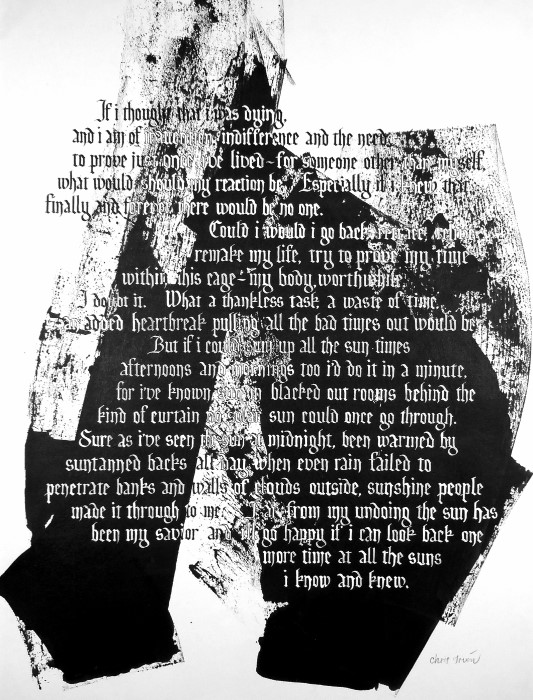 If i thought that i was dying.
and i am of indifference and the need
to prove just once i've lived - for someone other than myself,
what would should my reaction be. Especially if i knew that
finally and forever there would be no one.
Could i would i go back retrace
remake my life, try to prove my time
within this cage - my body, worthwhile.
I doubt it. What a thankless task, a waste of time
an added heartbreak pulling all the bad times out would be
But if i could sum up all the sun times
afternoons and mornings too i'd do it in a minute,
for i've known blacked out rooms behind the
kind of curtain no sun could once go through.
Sure as i've seen the sun at midnight, been warmed by
suntanned backs all day when even rain failed to
penetrate banks and walls of clouds outside, sunshine people
made it through to me. from my undoing the sun has
been my savior and i'll go happy if i can look back one
more time at all the suns
i know and knew.